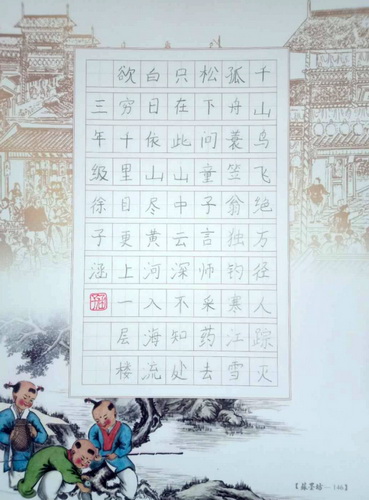 千山鸟飞绝万径人踪灭
孤舟蓑笠翁独钓寒江雪
松下问童子言师采药去
只在此山中云深不知处
白日依山尽黄河入海流
欲穷十里目更上一层楼
三年级徐子涵